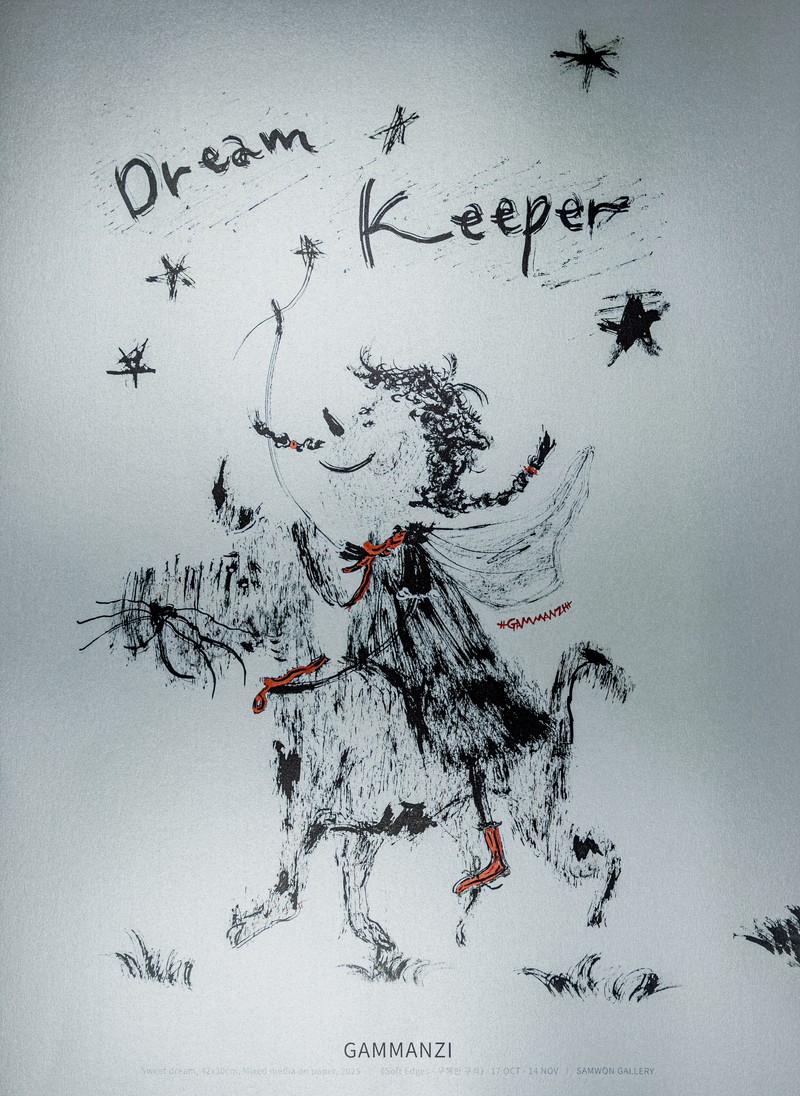 Dream
Keeper
#GAMMANZI#
GAMMANZI
Sweet dream, 42x30cm, Mixed media on paper, 2025 《Soft Edges - 무해한 구석》 17 OCT - 14 NOV | SAMWON GALLERY